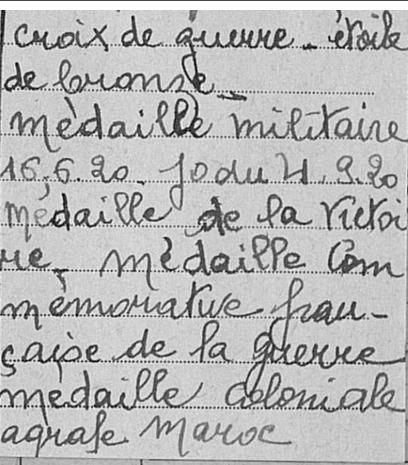 croix de guerre - étoile
de bronze -
médaille militaire
16.6.20. Jo du 4.9.20
médaille de la victoi
re - médaille Com
mémorative fran-
çaise de la guerre
médaille coloniale
agrafe Maroc